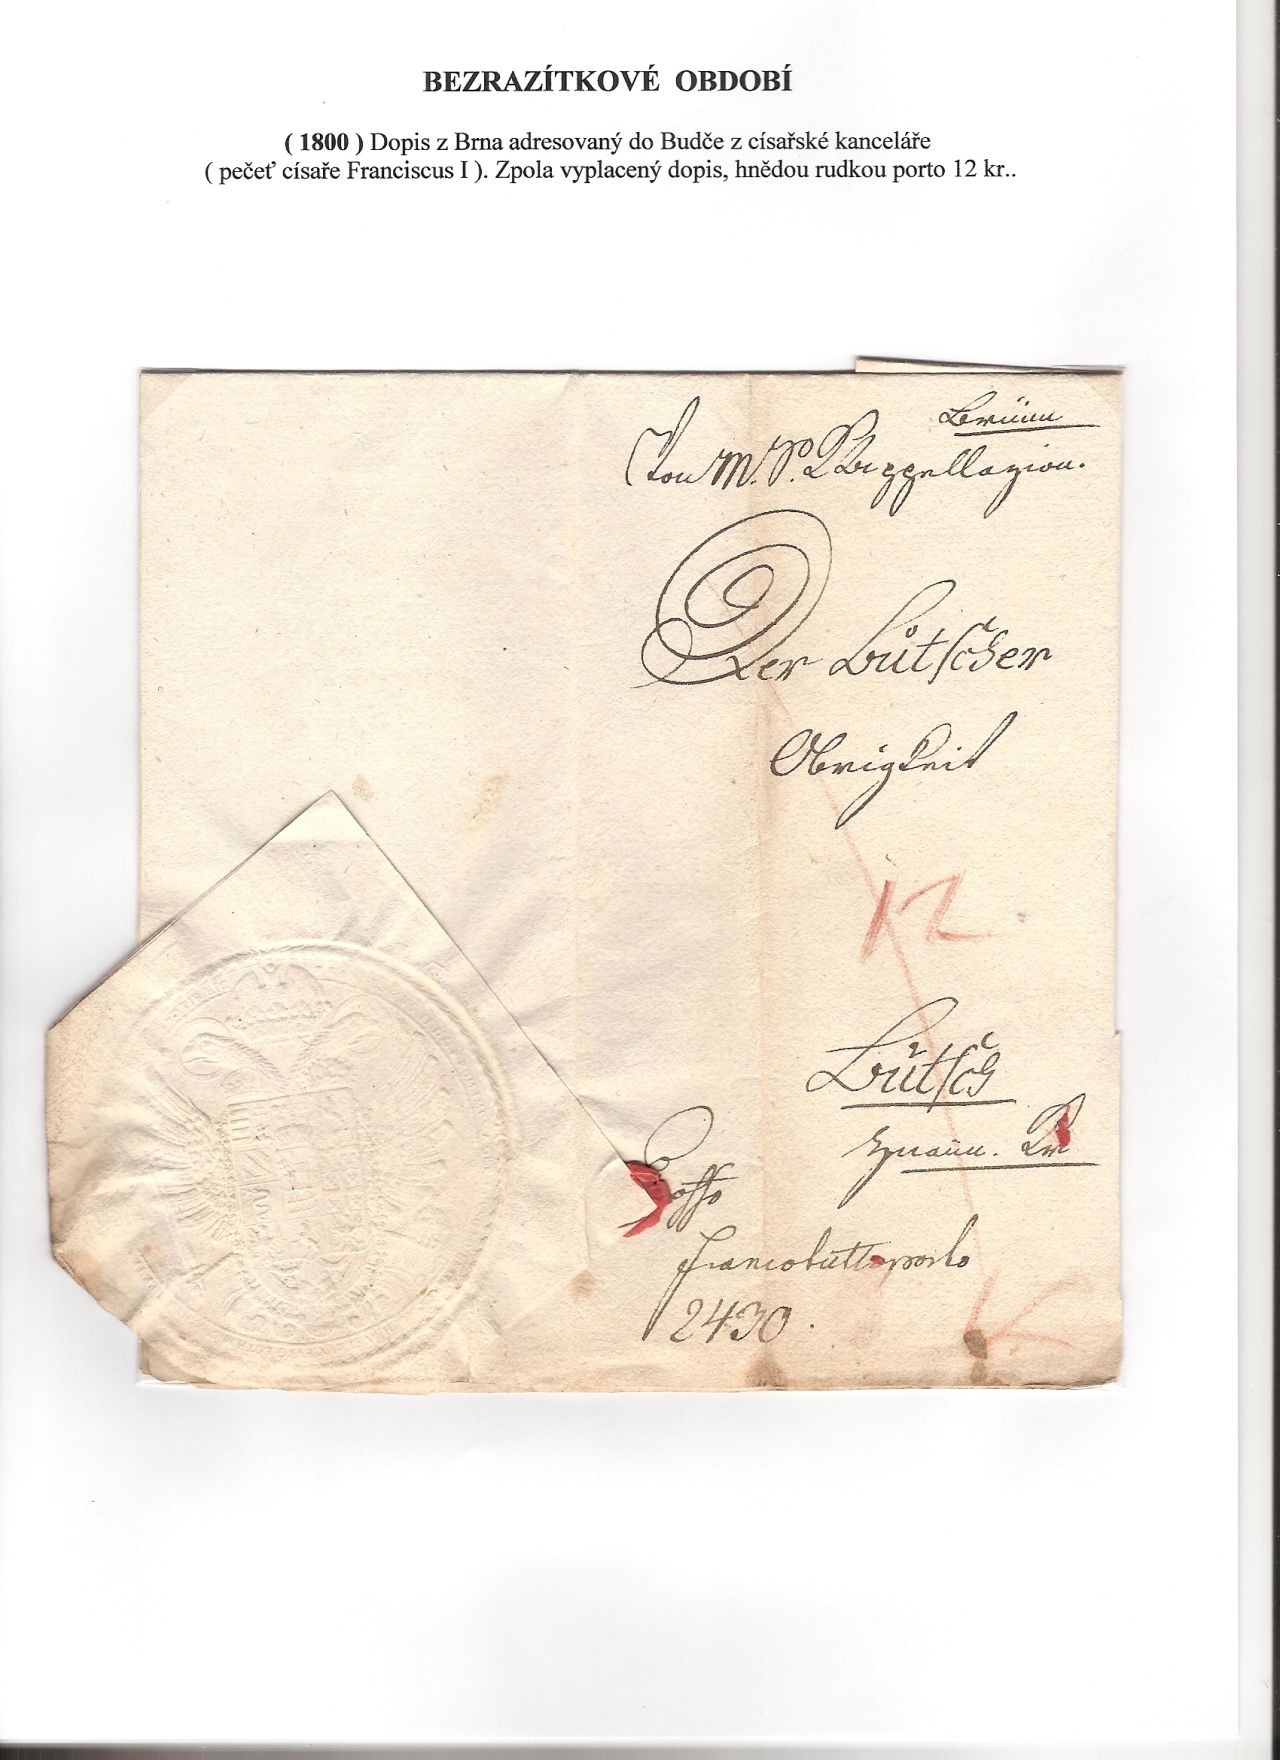 BEZRAZÍTKOVÉ OBDOBÍ
( 1800 ) Dopis z Brna adresovaný do Budče z císařské kanceláře
( pečeť císaře Franciscus I ). Zpola vyplacený dopis, hnědou rudkou porto 12 kr..
Brünn
Von M. S. Appellazion.
Der Bütscher
Obrigkeit
12
Bütsch
Znaim. Kr
2430.